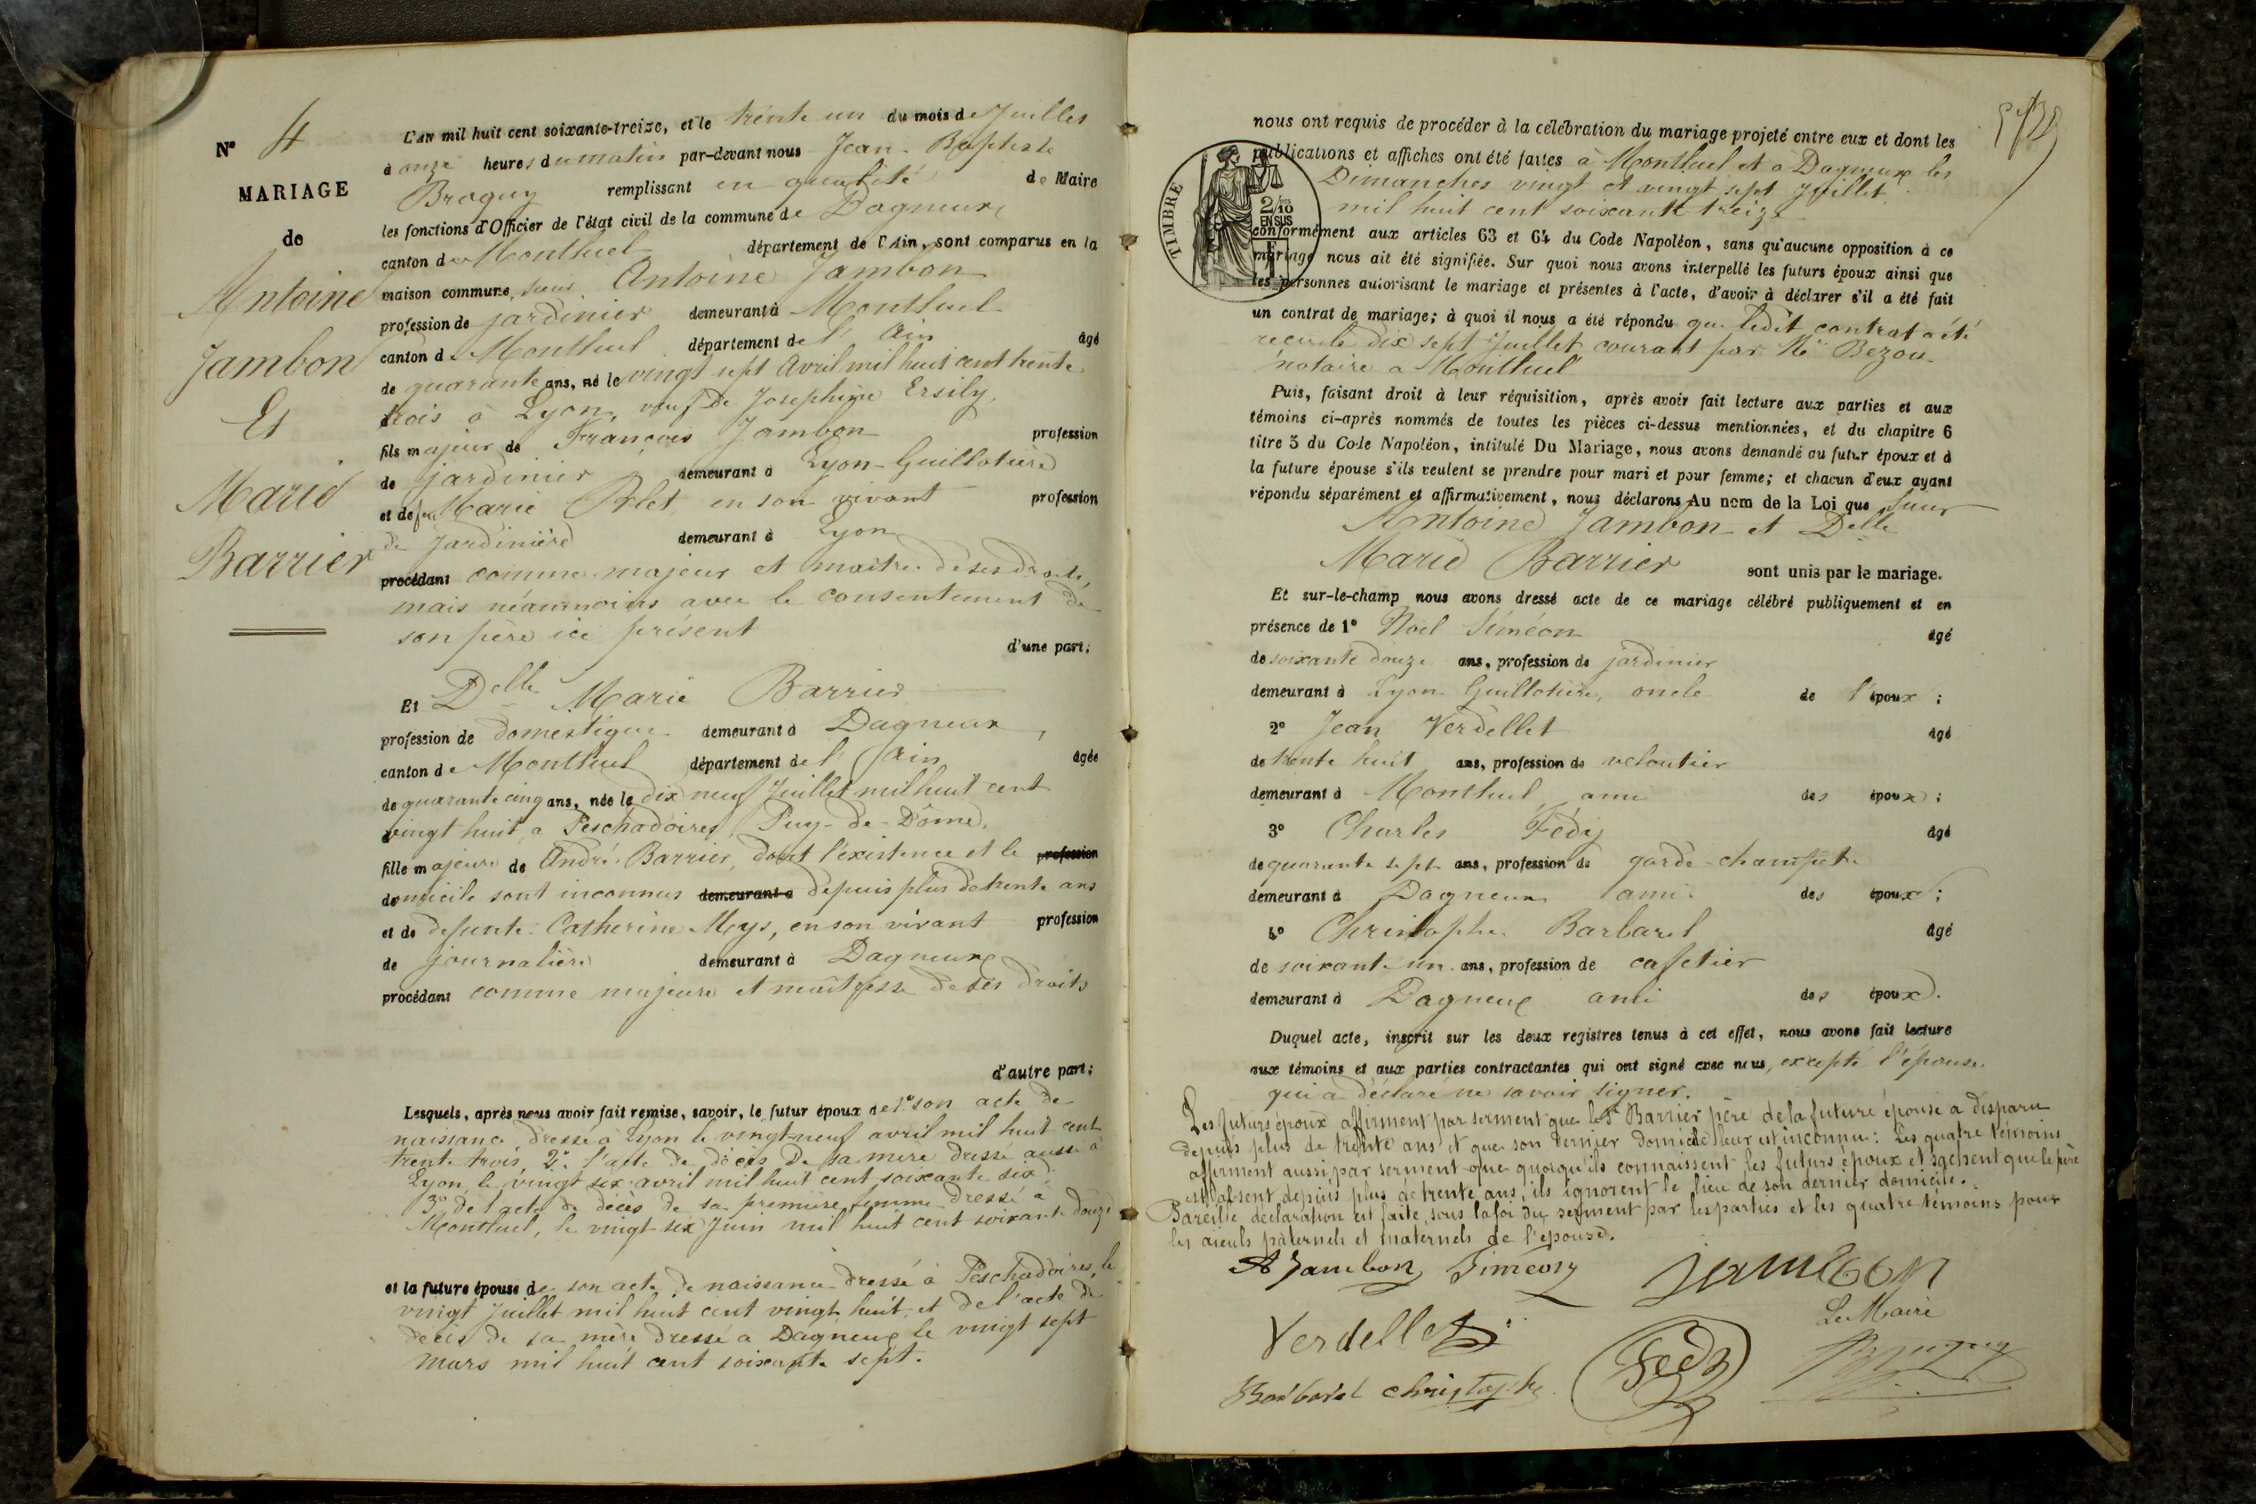 N° 4
MARIAGE
de
Antoine
Jambon
Et
Marie
Barrier
L'an mil huit cent soixante-treize, et le trente un du mois de Juillet
à onze heures du matin par-devant nous Jean-Baptiste
Braguy remplissant en qualité de Maire
les fonctions d'Officier de l'état civil de la commune de Dagneux
canton de Montluel département de l'Ain, sont comparus en la
maison commune, sieur Antoine Jambon
profession de jardinier demeurant à Montluel
canton de Montluel département de l'Ain âgé
de quarante ans, né le vingt sept Avril mil huit cent trente
trois à Lyon, veuf de Josephine Ersily,
fils majeur de François Jambon profession
de jardinier demeurant à Lyon-Guillotière
et de feu Marie Polet en son vivant profession
de Jardinière demeurant à Lyon
procédant comme majeur et maître de ses droits,
mais néanmoins avec le consentement de
son père ici présent
d'une part;
Et Delle Marie Barrier
profession de domestique demeurant à Dagneux,
canton de Montluel département de l'Ain âgée
de quarante cinq ans, née le dix neuf Juillet mil huit cent
vingt huit, a Peschadoires, Puy-de-Dôme,
fille majeure de André Barrier, dont l'existence et le profession
domicile sont inconnus demeurant à depuis plus de trente ans
et de defunte Catherine Mys, en son vivant profession
de journalière demeurant à Dagneux
procédant comme majeure et maîtresse de ses droits
d'autre part;
Lesquels, après nous avoir fait remise, savoir, le futur époux de 1° son acte de
naissance dressé à Lyon le vingt-neuf avril mil huit cent
trente trois, 2° l'acte de décès de sa mère dressé aussi à
Lyon, le vingt six avril mil huit cent soixante six,
3° de l'acte de décès de sa première femme dressé à
Montluel, le vingt six Juin mil huit cent soixante douze
et la future épouse de son acte de naissance dressé à Peschadoires, le
vingt Juillet mil huit cent vingt huit et de l'acte de
décès de sa mère dressé a Dagneux le vingt sept
Mars mil huit cent soixante sept.
nous ont requis de procéder à la célébration du mariage projeté entre eux et dont les
publications et affiches ont été faites à Montluel et à Dagneux les
Dimanches vingt et vingt sept Juillet
mil huit cent soixante treize
TIMBRE
2/10
EN SUS
conformément aux articles 63 et 64 du Code Napoléon, sans qu'aucune opposition à ce
mariage nous ait été signifiée. Sur quoi nous avons interpellé les futurs époux ainsi que
les personnes autorisant le mariage et présentes à l'acte, d'avoir à déclarer s'il a été fait
un contrat de mariage; à quoi il nous a été répondu que ledit contrat a été
reçu le dix sept Juillet courant par Me Bezou
notaire a Montluel
Puis, faisant droit à leur réquisition, après avoir fait lecture aux parties et aux
témoins ci-après nommés de toutes les pièces ci-dessus mentionnées, et du chapitre 6
titre 5 du Code Napoléon, intitulé Du Mariage, nous avons demandé au futur époux et à
la future épouse s'ils veulent se prendre pour mari et pour femme; et chacun d'eux ayant
répondu séparément et affirmativement, nous déclarons Au nom de la Loi que Sieur
Antoine Jambon et Delle
Marie Barrier sont unis par le mariage.
Et sur-le-champ nous avons dressé acte de ce mariage célébré publiquement et en
présence de 1° Noël Siméon âgé
de soixante douze ans, profession de jardinier
demeurant à Lyon Guillotière, oncle de l'époux;
2° Jean Verdellet âgé
de trente huit ans, profession de veloutier
demeurant à Montluel ami des époux;
3° Charles Fédy âgé
de quarante sept ans, profession de garde-champêtre
demeurant à Dagneux ami des époux;
4° Christophe Barbarel âgé
de soixante-un ans, profession de cafetier
demeurant à Dagneux ami des époux.
Duquel acte, inscrit sur les deux registres tenus à cet effet, nous avons fait lecture
aux témoins et aux parties contractantes qui ont signé avec nous, excepté l'épouse
qui a déclaré ne savoir signer.
Les futurs époux affirment par serment que le Sr Barrier père de la future épouse a disparu
depuis plus de trente ans et que son dernier domicile leur est inconnu: Les quatre témoins
affirment aussi par serment que quoiqu'ils connaissent les futurs époux et sachent que le père
est absent depuis plus de trente ans, ils ignorent le lieu de son dernier domicile.
Pareille déclaration est faite, sous la foi du serment par les parties et les quatre témoins pour
les aïeuls paternels et maternels de l'épouse.
A Jambon Siméon Jambon
Le Maire
Verdellet
Fedy
Braguy
Barbarel christophe